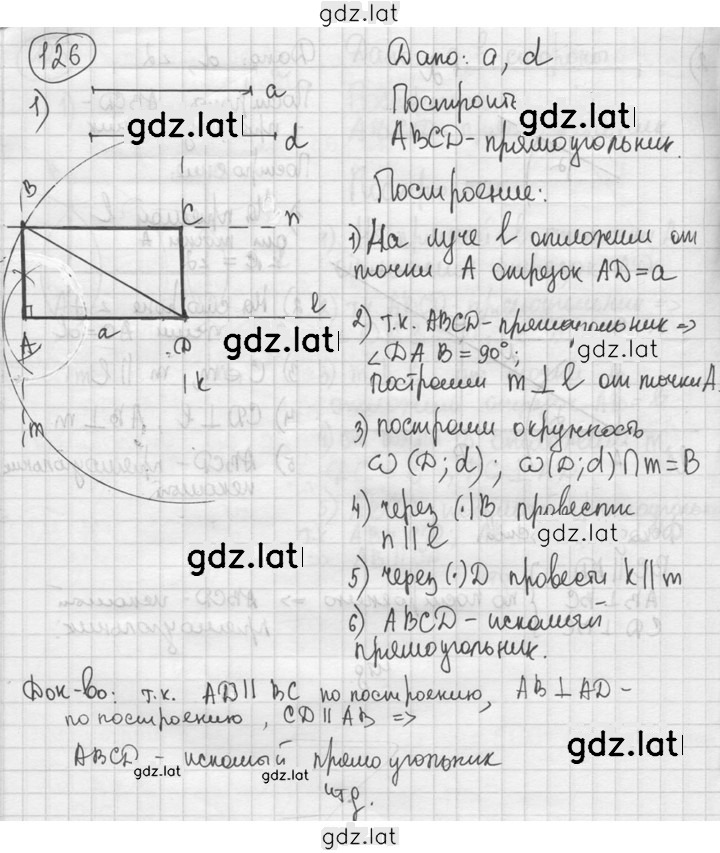 gdz.lat
126
Дано: a, d
1)
a
Построить
gdz.lat
gdz.lat
d
ABCD - прямоугольник.
Построение:
B
C
n
1) На луче l отложим от
точки A отрезок AD = a
A
a
D
l
gdz.lat
2) т.к. ABCD - прямоугольник =>
∠DAB = 90°;
gdz.lat
k
построим m ⊥ l от точки A.
m
3) построим окружность
ω(D; d); ω(D; d) ∩ m = B
4) через (·) B провести
n || l
gdz.lat
gdz.lat
5) через (·) D провести k || m
6) ABCD - искомый
прямоугольник.
Док-во: т.к. AD || BC по построению, AB ⊥ AD -
по построению, CD || AB =>
gdz.lat
ABCD - искомый прямоугольник
gdz.lat
gdz.lat
чтд.
gdz.lat